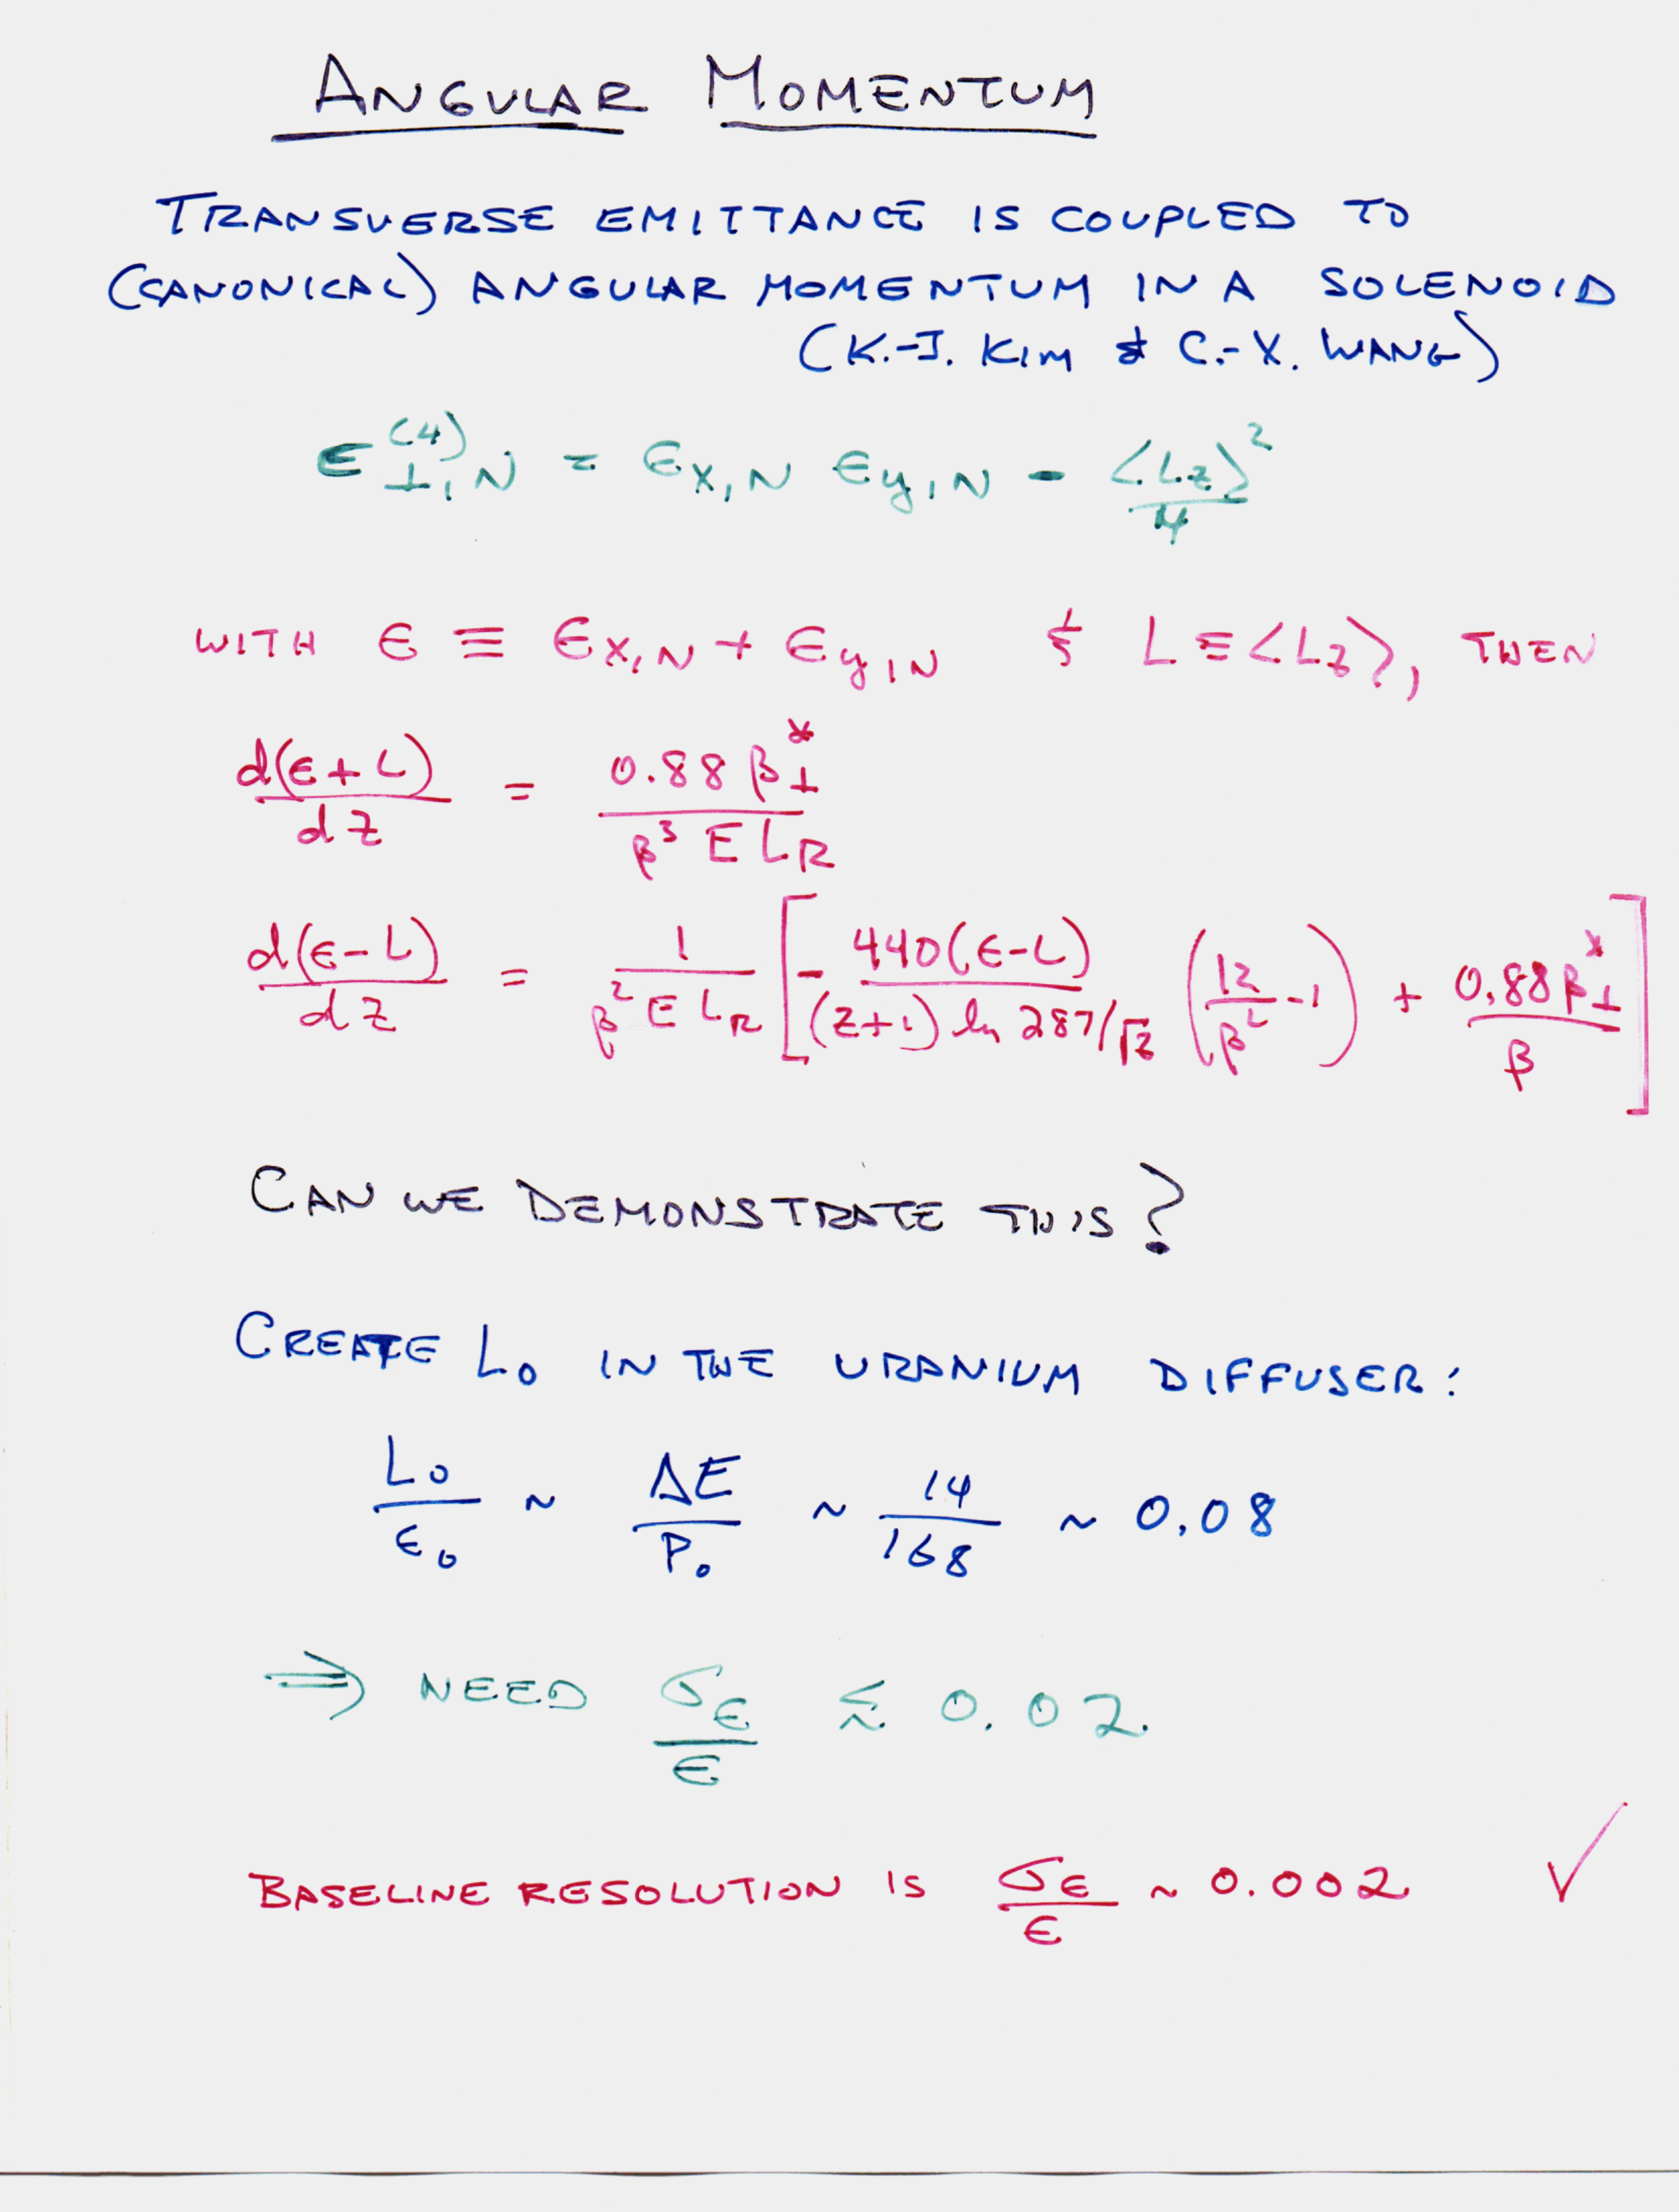 ANGULAR MOMENTUM
TRANSVERSE EMITTANCE IS COUPLED TO
(CANONICAL) ANGULAR MOMENTUM IN A SOLENOID
(K.-J. KIM & C.-X. WANG)
ϵ⊥,N^(4) = ϵx,N ϵy,N - <Lz>²/4
WITH ϵ ≡ ϵx,N + ϵy,N & L ≡ <Lz>, THEN
d(ϵ+L)/dz = 0.88 β⊥*/(β³ E L_R)
d(ϵ-L)/dz = 1/(β² E L_R) [- 440(ϵ-L)/((Z+1) ln 287/√Z) (12/β² - 1) + 0.88β⊥*/β]
CAN WE DEMONSTRATE THIS?
CREATE L₀ IN THE URANIUM DIFFUSER:
L₀/ϵ₀ ~ ΔE/P₀ ~ 14/168 ~ 0.08
⇒ NEED σϵ/ϵ ≲ 0.02
BASELINE RESOLUTION IS σϵ/ϵ ~ 0.002 ✓